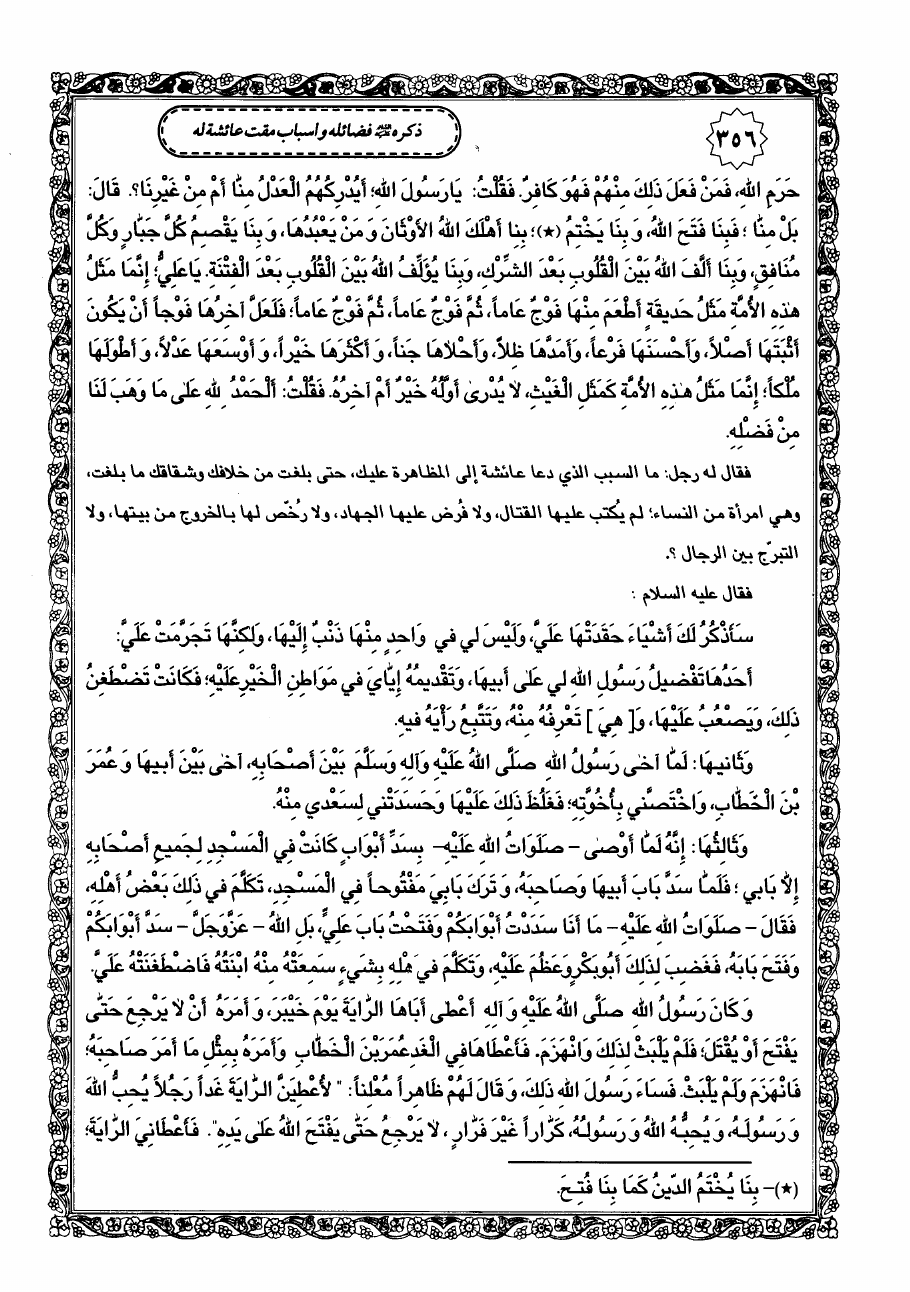 ٣٥٦
ذكره فضائله و أسباب مقت عائشة له
حَرَمِ اللهِ، فَمَنْ فَعَلَ ذٰلِكَ مِنْهُمْ فَهُوَ كَافِرٌ. فَقُلْتُ: يَا رَسُولَ اللهِ؛ أَيُدْرِكُهُمُ الْعَدْلُ مِنَّا أَمْ مِنْ غَيْرِنَا؟. قَالَ:
بَلْ مِنَّا؛ فَبِنَا فَتَحَ اللهُ، وَ بِنَا يَخْتِمُ (★)؛ بِنا أَهْلَكَ اللهُ الأَوْثَانَ وَ مَنْ يَعْبُدُهَا، وَ بِنَا يَقْصِمُ كُلَّ جَبَّارٍ وَكُلَّ
مُنَافِقٍ، وَبِنَا أَلَّفَ اللهُ بَيْنَ الْقُلُوبِ بَعْدَ الشِّرْكِ، وَبِنَا يُؤَلِّفُ اللهُ بَيْنَ الْقُلُوبِ بَعْدَ الْفِتْنَةِ. يَاعَلِيُّ؛ إِنَّمَا مَثَلُ
هٰذِهِ الأُمَّةِ مَثَلُ حَدِيقَةٍ أُطْعِمَ مِنْهَا فَوْجٌ عَاماً، ثُمَّ فَوْجٌ عَاماً، ثُمَّ فَوْجٌ عَاماً؛ فَلَعَلَّ آخِرُهَا فَوْجاً أَنْ يَكُونَ
أَثْبَتَهَا أَصْلاً، وَأَحْسَنَهَا فَرْعاً، وَأَمَدَّهَا ظِلاًّ، وَأَحْلَاهَا جَناً، وَ أَكْثَرَهَا خَيْراً، وَ أَوْسَعَهَا عَدْلاً، وَ أَطْوَلَهَا
مُلْكاً؛ إِنَّمَا مَثَلُ هٰذِهِ الأُمَّةِ كَمَثَلِ الْغَيْثِ، لَا يُدْرىٰ أَوَّلُهُ خَيْرٌ أَمْ آخِرُهُ. فَقُلْتُ: أَلْحَمْدُ لِلهِ عَلىٰ مَا وَهَبَ لَنَا
مِنْ فَضْلِهِ.
فقال له رجل: ما السبب الذي دعا عائشة إلى المظاهرة عليك، حتى بلغت من خلافك وشقاقك ما بلغت،
وهي امرأة من النساء؛ لم يكتب عليها القتال، ولا فُرض عليها الجهاد، ولا رخّص لها بالخروج من بيتها، ولا
التبرّج بين الرجال ؟.
فقال عليه السلام :
سَأَذْكُرُ لَكَ أَشْيَاءَ حَقَدَتْهَا عَلَيَّ، وَلَيْسَ لي في وَاحِدٍ مِنْهَا ذَنْبٌ إِلَيْهَا، وَلٰكِنَّهَا تَجَرَّمَتْ عَلَيَّ:
أَحَدُهَا تَفْضِيلُ رَسُولِ اللهِ لي عَلىٰ أَبيهَا، وَتَقْديمُهُ إِيَّايَ في مَوَاطِنِ الْخَيْرِ عَلَيْهِ؛ فَكَانَتْ تَضْطَغِنُ
ذٰلِكَ، وَيَصْعُبُ عَلَيْهَا، وَ[ هِيَ ] تَعْرِفُهُ مِنْهُ، وَتَتَّبِعُ رَأْيَهُ فيهِ.
وَثَانيهَا: لَمَّا آخىٰ رَسُولُ اللهِ صَلَّى اللهُ عَلَيْهِ وَآلِهِ وَسَلَّمَ بَيْنَ أَصْحَابِهِ، آخىٰ بَيْنَ أَبيهَا وَ عُمَرَ
بْنَ الْخَطَّابِ، وَاخْتَصَّني بِأُخُوَّتِهِ؛ فَغَلُظَ ذٰلِكَ عَلَيْهَا وَحَسَدَتْني لِسَعْدي مِنْهُ.
وَثَالِثُهَا: إِنَّهُ لَمَّا أَوْصىٰ – صَلَوَاتُ اللهِ عَلَيْهِ– بِسَدِّ أَبْوَابٍ كَانَتْ فِي الْمَسْجِدِ لِجَميعِ أَصْحَابِهِ
إِلَّا بَابي؛ فَلَمَّا سَدَّ بَابَ أَبيهَا وَصَاحِبِهِ، وَ تَرَكَ بَابِيَ مَفْتُوحاً فِي الْمَسْجِدِ، تَكَلَّمَ في ذٰلِكَ بَعْضُ أَهْلِهِ،
فَقَالَ – صَلَوَاتُ اللهِ عَلَيْهِ – مَا أَنَا سَدَدْتُ أَبْوَابَكُمْ وَفَتَحْتُ بَابَ عَلِيٍّ، بَلِ اللهُ – عَزَّوَجَلَّ – سَدَّ أَبْوَابَكُمْ
وَفَتَحَ بَابَهُ، فَغَضِبَ لِذٰلِكَ أَبُوبَكْرٍ وَعَظُمَ عَلَيْهِ، وَتَكَلَّمَ في أَهْلِهِ بِشَيْءٍ سَمِعَتْهُ مِنْهُ ابْنَتُهُ فَاضْطَغَنَتْهُ عَلَيَّ.
وَ كَانَ رَسُولُ اللهِ صَلَّى اللهُ عَلَيْهِ وَ آلِهِ أَعْطىٰ أَبَاهَا الرَّايَةَ يَوْمَ خَيْبَرَ، وَ أَمَرَهُ أَنْ لَا يَرْجِعَ حَتّىٰ
يَفْتَحَ أَوْ يُقْتَلَ؛ فَلَمْ يَلْبَثْ لِذٰلِكَ وَانْهَزَمَ. فَأَعْطَاهَا فِي الْغَدِ عُمَرَ بْنَ الْخَطَّابِ وَأَمَرَهُ بِمِثْلِ مَا أَمَرَ صَاحِبَهُ؛
فَانْهَزَمَ وَلَمْ يَلْبَثْ. فَسَاءَ رَسُولَ اللهِ ذٰلِكَ، وَ قَالَ لَهُمْ ظَاهِراً مُعْلِناً: " لأُعْطِيَنَّ الرَّايَةَ غَداً رَجُلاً يُحِبُّ اللهَ
وَ رَسُولَهُ، وَ يُحِبُّهُ اللهُ وَ رَسُولُهُ، كَرَّاراً غَيْرَ فَرَّارٍ، لَا يَرْجِعُ حَتّىٰ يَفْتَحَ اللهُ عَلىٰ يَدِهِ". فَأَعْطَانِيَ الرَّايَةَ؛
(★)– بِنَا يُخْتَمُ الدّينُ كَمَا بِنَا فُتِحَ.